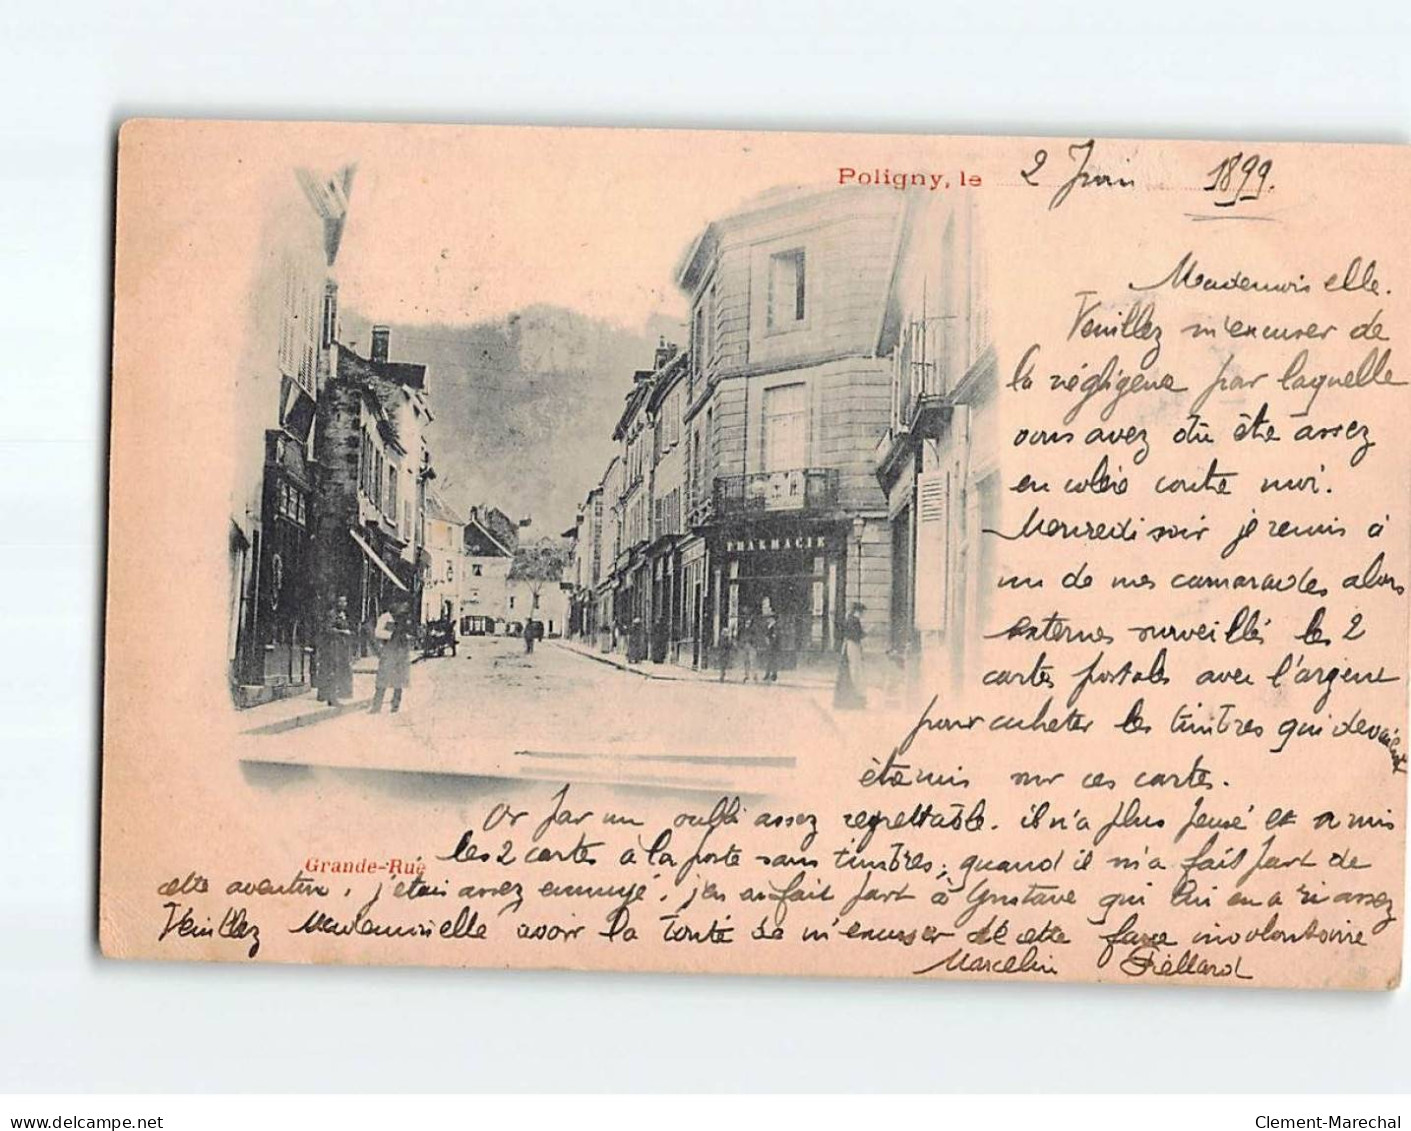 Poligny, le 2 Juin 1899.
Mademoiselle.
Veuillez m'excuser de
la négligence par laquelle
vous avez dû être assez
en colère contre moi.
Mercredi soir je remis à
un de mes camarades alors
externes surveillés les 2
cartes postales avec l'argent
pour acheter les timbres qui devaient
être mis sur ces cartes.
PHARMACIE
Or par un oubli assez regrettable. il n'a plus pensé et a mis
les 2 cartes à la poste sans timbres; quand il m'a fait part de
Grande-Rue
cette aventure, j'étais assez ennuyé, j'en ai fait part à Gustave qui lui en a ri assez
Veuillez Mademoiselle avoir la bonté de m'excuser de cette faute involontaire
Marcelin
www.delcampe.net
Clement-Marechal